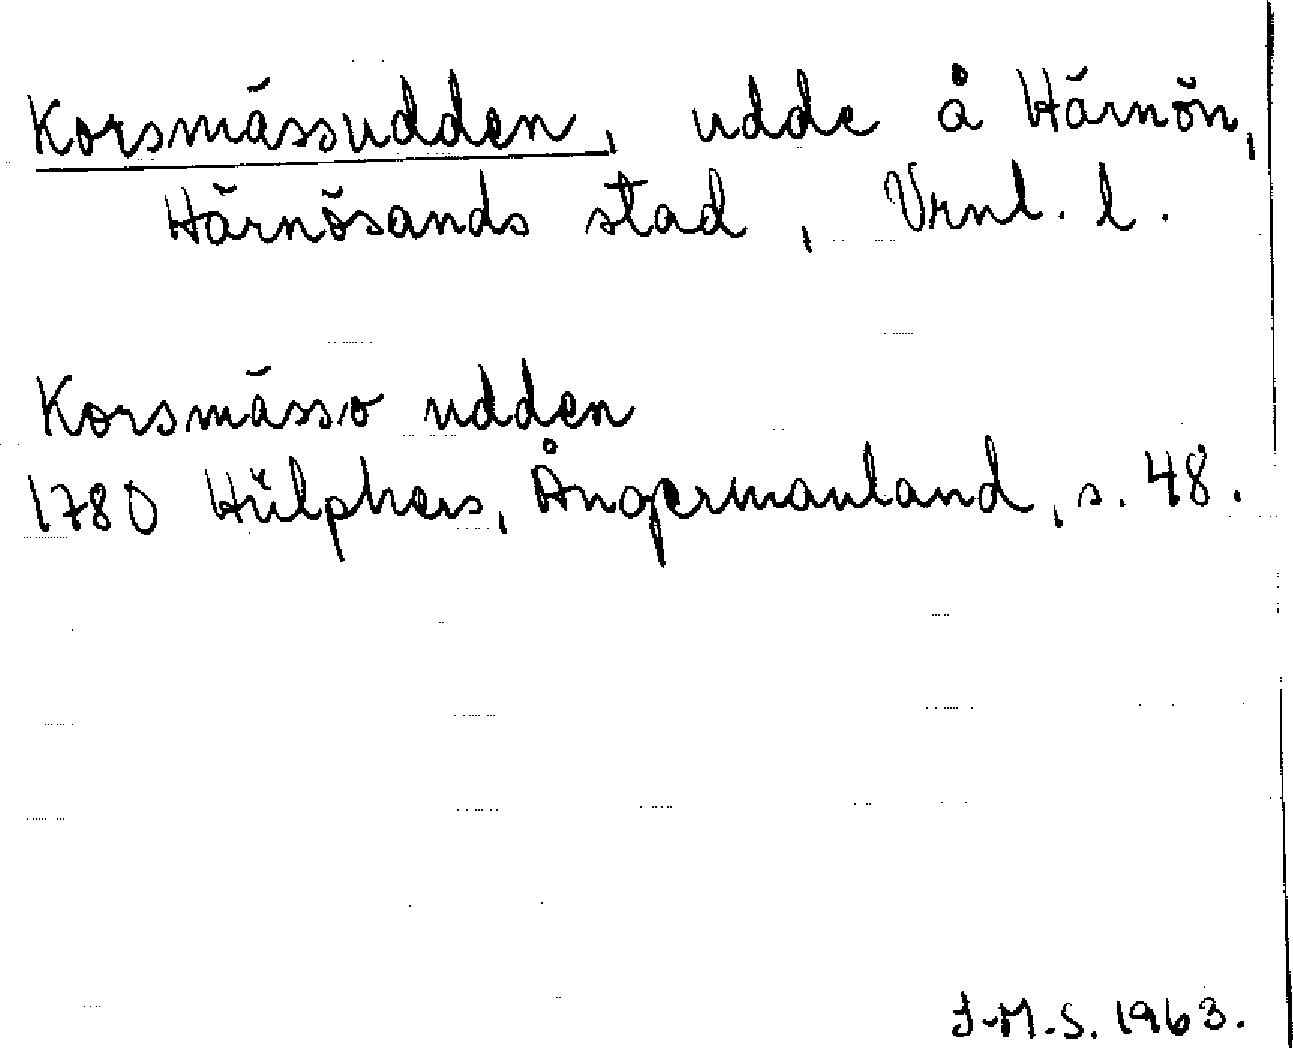 Korsmässudden, udde å Härnön,
Härnösands stad, Vrnl. l.
Korsmässo udden
1780 Hülphers, Ångermanland, s. 48.
I-M.S. 1963.